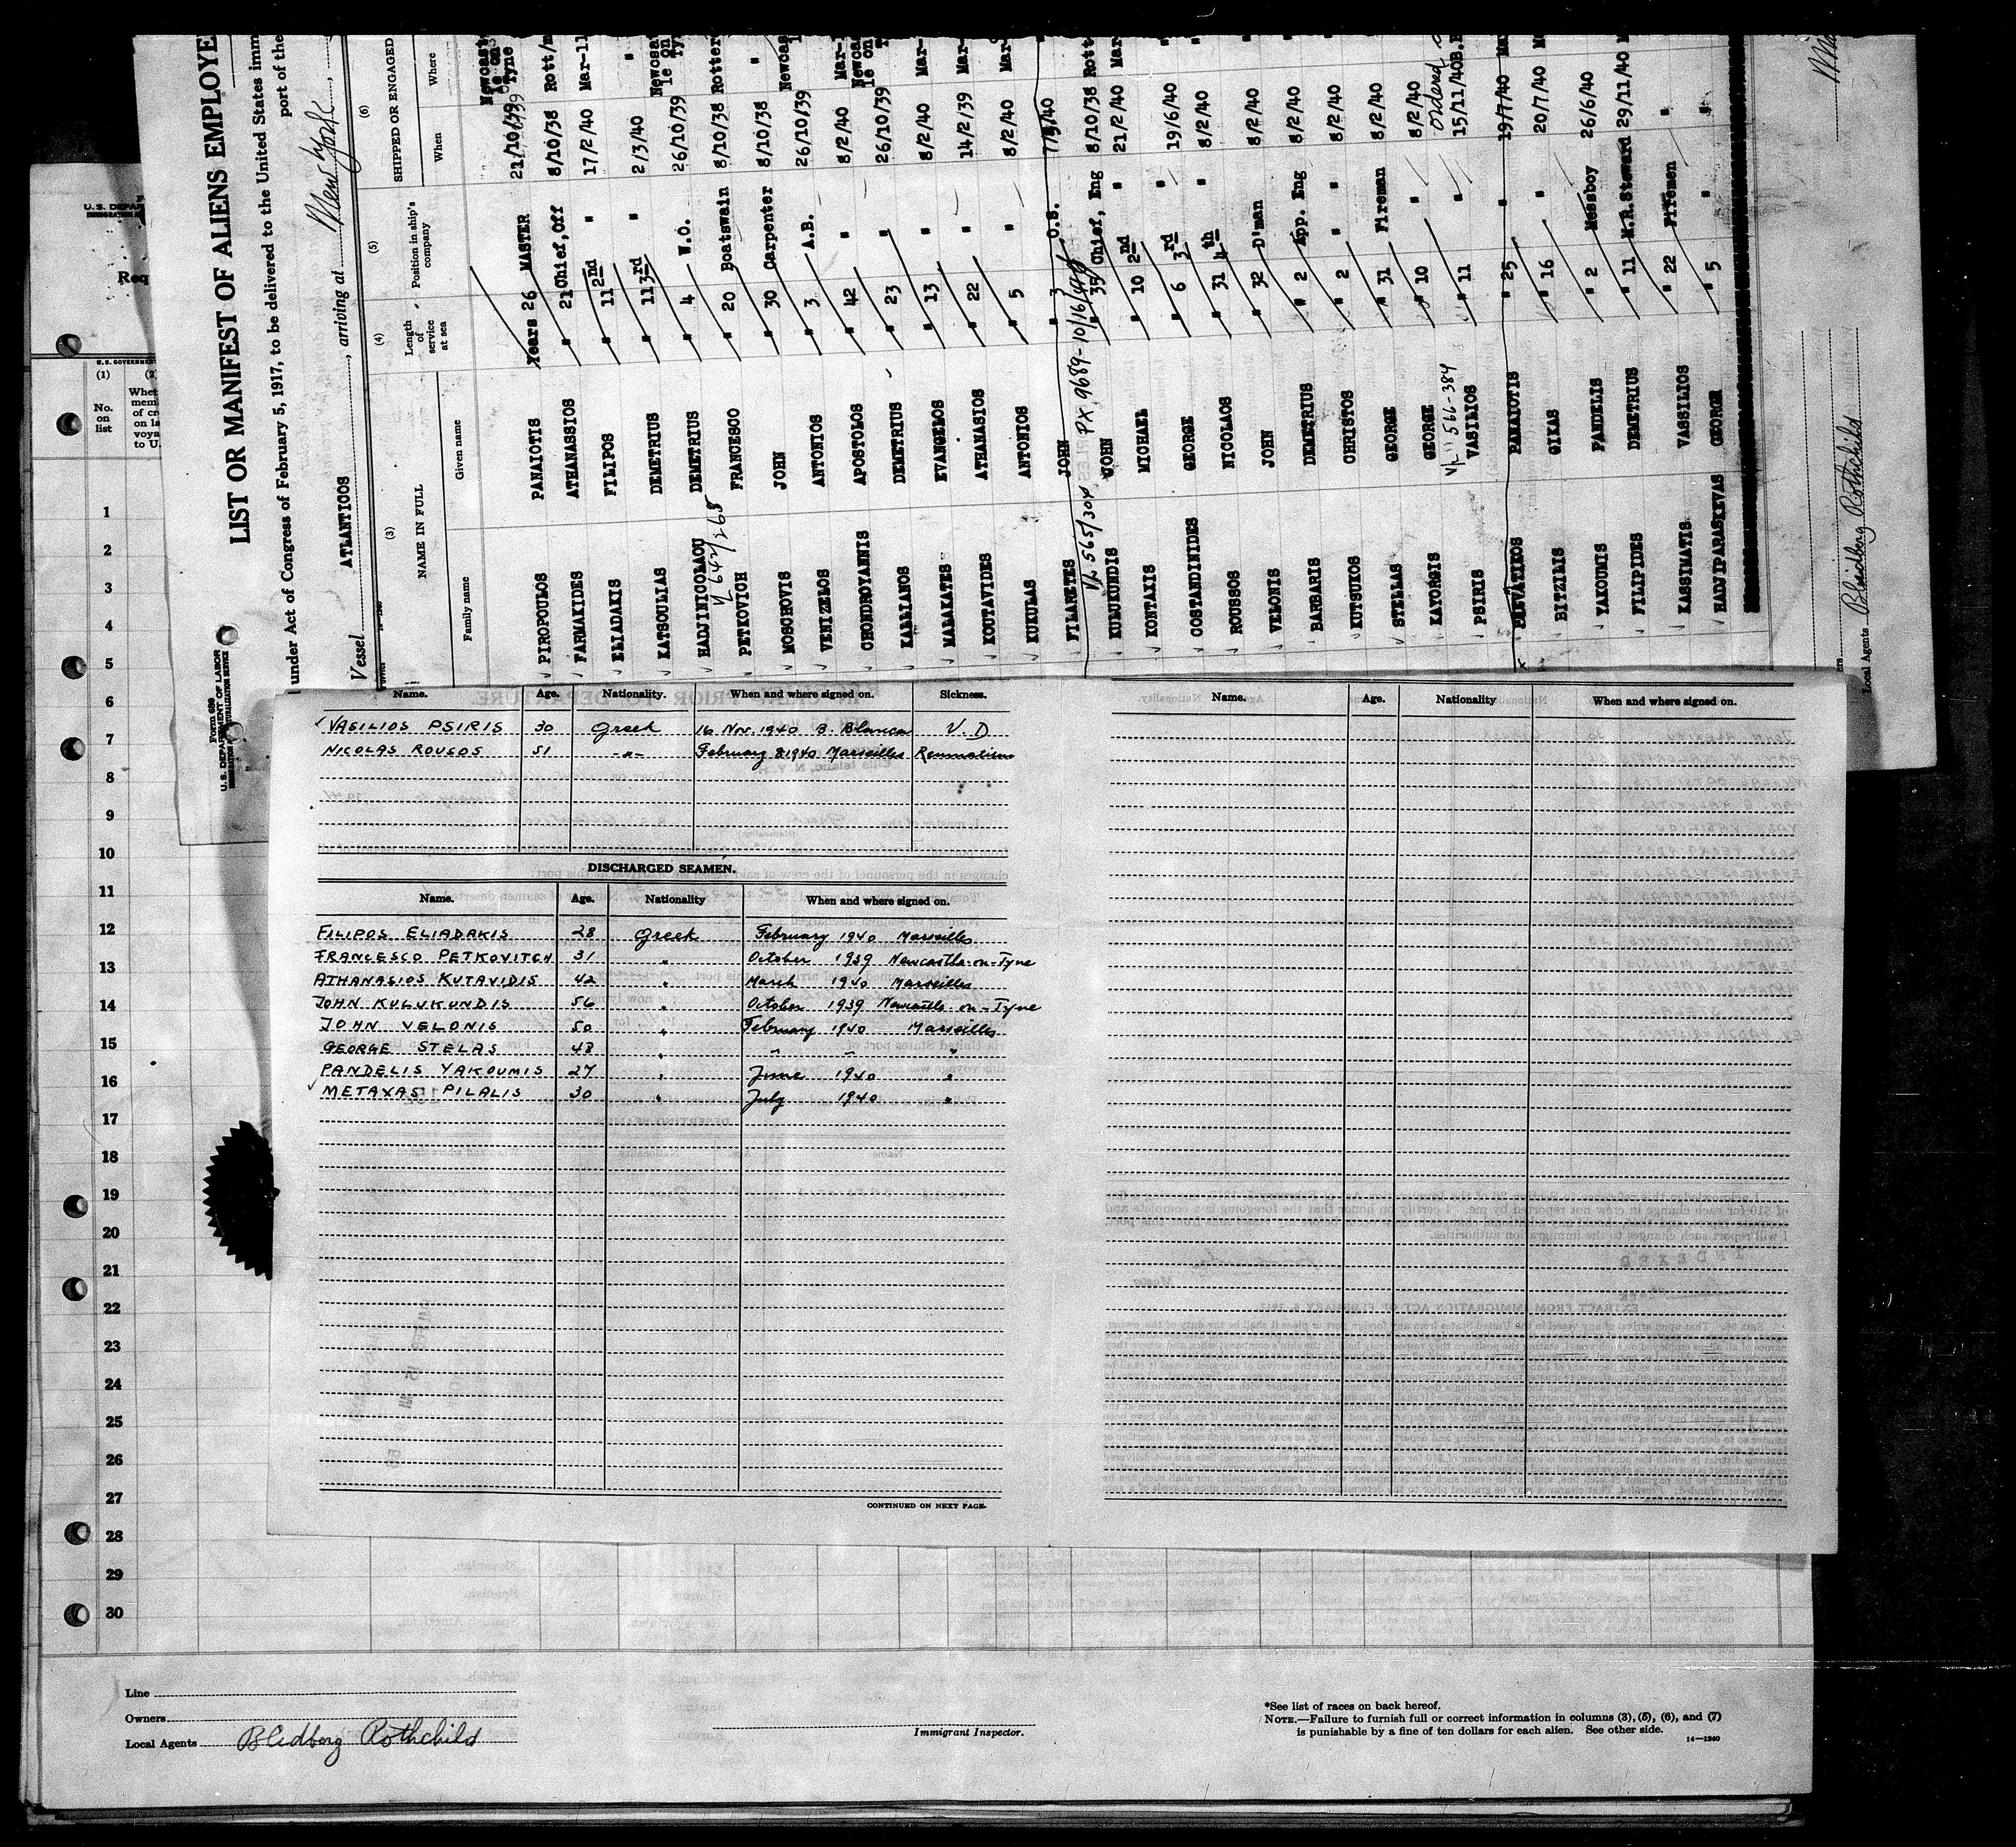 LIST OR MANIFEST OF ALIENS EMPLOYE
under Act of Congress of February 5, 1917, to be delivered to the United States imm
port of the
Vessel ATLANTICOS, arriving at New York
(3) (4) (5) (6)
NAME IN FULL
Family name Given name
Length of service at sea
Position in ship's company
SHIPPED OR ENGAGED
When Where
PIROPOULOS PANAIOTIS Years 26 MASTER 21/10/39 Newcast le on Tyne
FARMAKIDES ATHANASSIOS " 21 Chief, Off 8/10/38 Rott/m
ELIADAKIS FILIPOS " 11 2nd " 17/2/40 Mar-11
KATSOULIAS DEMETRIUS " 11 3rd " 2/3/40 "
HADJINICOLAOU DEMETRIUS " 4 W.O. 26/10/39 Newcas le on Ty
PETKOVICH FRANCESCO " 20 Boatswain 8/10/38 Rotter
MOSCHOVIS JOHN " 30 Carpenter 8/10/38 "
VENIZELOS ANTONIOS " 3 A.B. 26/10/39 Newcas
CHONDROYANNIS APOSTOLOS " 42 " 8/2/40 Mar-
KALLIANOS DEMETRIUS " 23 " 26/10/39 Newca le on
MALAKATES EVANGELOS " 13 " 8/2/40 Mar-
KOUTAVIDES ATHANASIOS " 22 " 14/2/39 Mar-
KUKULAS ANTONIOS " 5 " 8/2/40 Mar-
FILARETES JOHN " 3 O.S.
V/L 565/304 PX 9689-10/16/40
KULUKUNDIS JOHN " 35 Chief, Eng 8/10/38 Rott
KONTAKIS MICHAEL " 10 2nd " 21/2/40 Mar
COSTANDINIDES GEORGE " 6 3rd " 19/6/40 "
ROUSSOS NICOLAOS " 31 4th " 8/2/40 "
VELONIS JOHN " 32 D'man 8/2/40 "
BARBARIS DEMETRIUS " 2 App. Eng 8/2/40 "
KUTSUKOS CHRISTOS " 2 " 8/2/40 "
STELLAS GEORGE " 31 Fireman 8/2/40 "
KAYORGIS GEORGE " 10 " 8/2/40
V/L 566-384 ordered
PSIRIS VASILIOS " 11 " 15/11/40
PANAIOTIS " 25 " 19/7/40
BITZILIS GIKAS " 16 " 20/7/40
YAKOUMIS PANDELIS " 2 Messboy 26/6/40
FILIPIDES DEMETRIUS " 11 M.R.Steward 29/11/40
KASSIMATIS VASSILIOS " 22 Firemen "
HADJIPARASKEVAS GEORGE " 5 " "
Local Agents Bleidberg Rothchild
U.S. DEPARTMENT OF LABOR
Form 689
Req
(1)
No. on list
1
2
3
4
5
6
7
8
9
10
11
12
13
14
15
16
17
18
19
20
21
22
23
24
25
26
27
28
29
30
Name. Age. Nationality. When and where signed on. Sickness.
VASILIOS PSIRIS 30 Greek 16 Nov. 1940 B. Blanca V.D
NICOLAS ROUSOS 51 -"- February 8 1940 Marseilles Reumatism
DISCHARGED SEAMEN.
Name. Age. Nationality When and where signed on.
FILIPOS ELIADAKIS 28 Greek February 1940 Marseilles
FRANCESCO PETKOVITCH 31 " October 1939 Newcastle-on-Tyne
ATHANASIOS KUTAVIDIS 42 " March 1940 Marseilles
JOHN KULUKUNDIS 56 " October 1939 Newcastle-on-Tyne
JOHN VELONIS 50 " February 1940 Marseilles
GEORGE STELAS 48 " " " "
PANDELIS YAKOUMIS 27 " June 1940 "
METAXAS PILALIS 30 " July 1940 "
CONTINUED ON NEXT PAGE.
Name. Age. Nationality When and where signed on.
Line
Owners
Local Agents Bleidberg Rothchild
Immigrant Inspector.
*See list of races on back hereof.
NOTE.—Failure to furnish full or correct information in columns (3), (5), (6), and (7)
is punishable by a fine of ten dollars for each alien. See other side.
14—1240